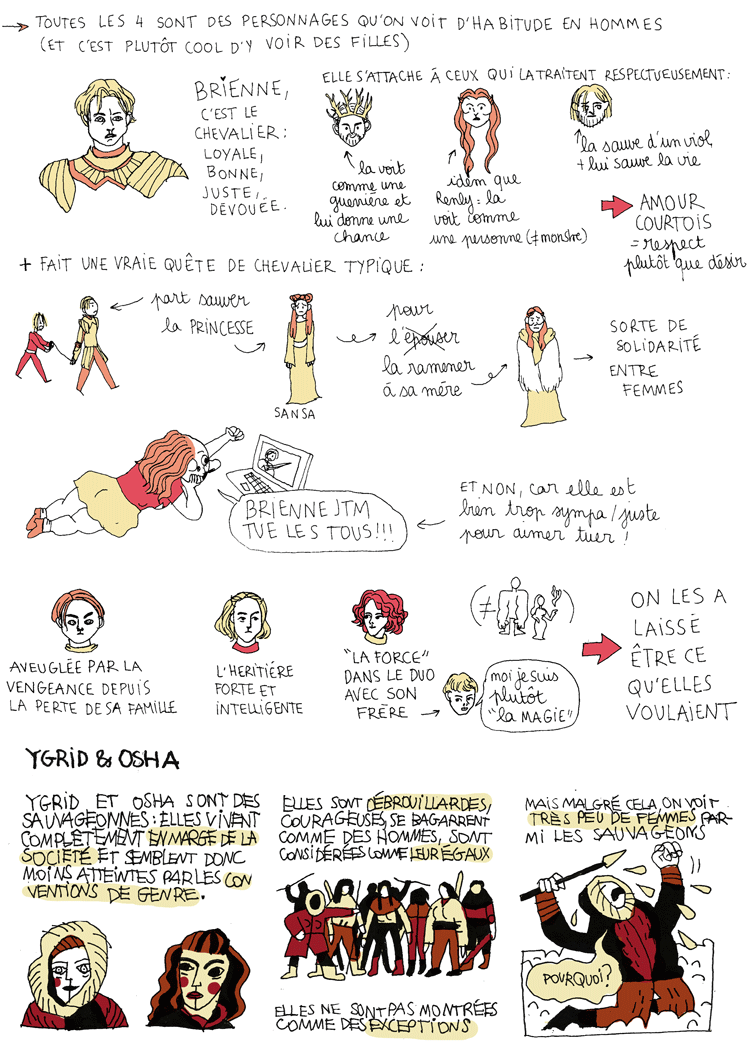 TOUTES LES 4 SONT DES PERSONNAGES QU'ON VOIT D'HABITUDE EN HOMMES
(ET C'EST PLUTÔT COOL D'Y VOIR DES FILLES)
BRIENNE,
C'EST LE
CHEVALIER:
LOYALE,
BONNE,
JUSTE,
DÉVOUÉE.
ELLE S'ATTACHE À CEUX QUI LA TRAITENT RESPECTUEUSEMENT:
la voit
comme une
guerrière et
lui donne une
chance
idem que
Renly: la
voit comme
une personne (≠monstre)
la sauve d'un viol,
+ lui sauve la vie
AMOUR
COURTOIS
= respect
plutôt que désir
+ FAIT UNE VRAIE QUÊTE DE CHEVALIER TYPIQUE:
part sauver
la PRINCESSE
SANSA
pour
l'épouser
la ramener
à sa mère
SORTE DE
SOLIDARITÉ
ENTRE
FEMMES
BRIENNE JTM
TUE LES TOUS!!!
ET NON, car elle est
bien trop sympa/juste
pour aimer tuer!
AVEUGLÉE PAR LA
VENGEANCE DEPUIS
LA PERTE DE SA FAMILLE
L'HERITIÉRE
FORTE ET
INTELLIGENTE
"LA FORCE"
DANS LE DUO
AVEC SON
FRÈRE
moi je suis
plutôt
"la MAGIE"
(≠ )
ON LES A
LAISSÉ
ÊTRE CE
QU'ELLES
VOULAIENT
YGRID & OSHA
YGRID ET OSHA SONT DES
SAUVAGEONNES: ELLES VIVENT
COMPLÈTEMENT EN MARGE DE LA
SOCIÉTÉ ET SEMBLENT DONC
MOINS ATTEINTES PAR LES CON
VENTIONS DE GENRE.
ELLES SONT DÉBROUILLARDES,
COURAGEUSES, SE BAGARRENT
COMME DES HOMMES, SONT
CONSIDÉRÉES COMME LEUR ÉGAUX
ELLES NE SONT PAS MONTRÉES
COMME DES EXCEPTIONS
MAIS MALGRÉ CELA, ON VOIT
TRÈS PEU DE FEMMES PAR-
MI LES SAUVAGEONS
POURQUOI?